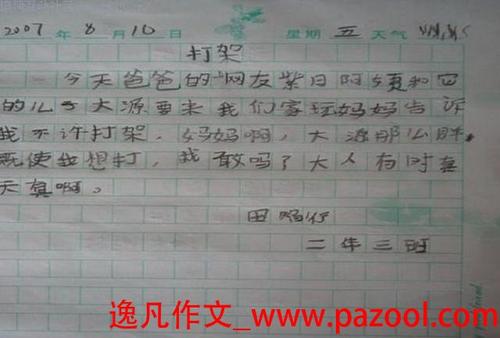 2007 年 8 月 10 日 星期 五 天气
打架
今天爸爸的网友紫日阿姨和它
的儿子大源要来我们家玩妈妈告诉
我不许打架，妈妈啊，大源那么胖，
既使我想打，我敢吗？大人有时真
天真啊。
田
二年三班
逸凡作文_www.pazool.com